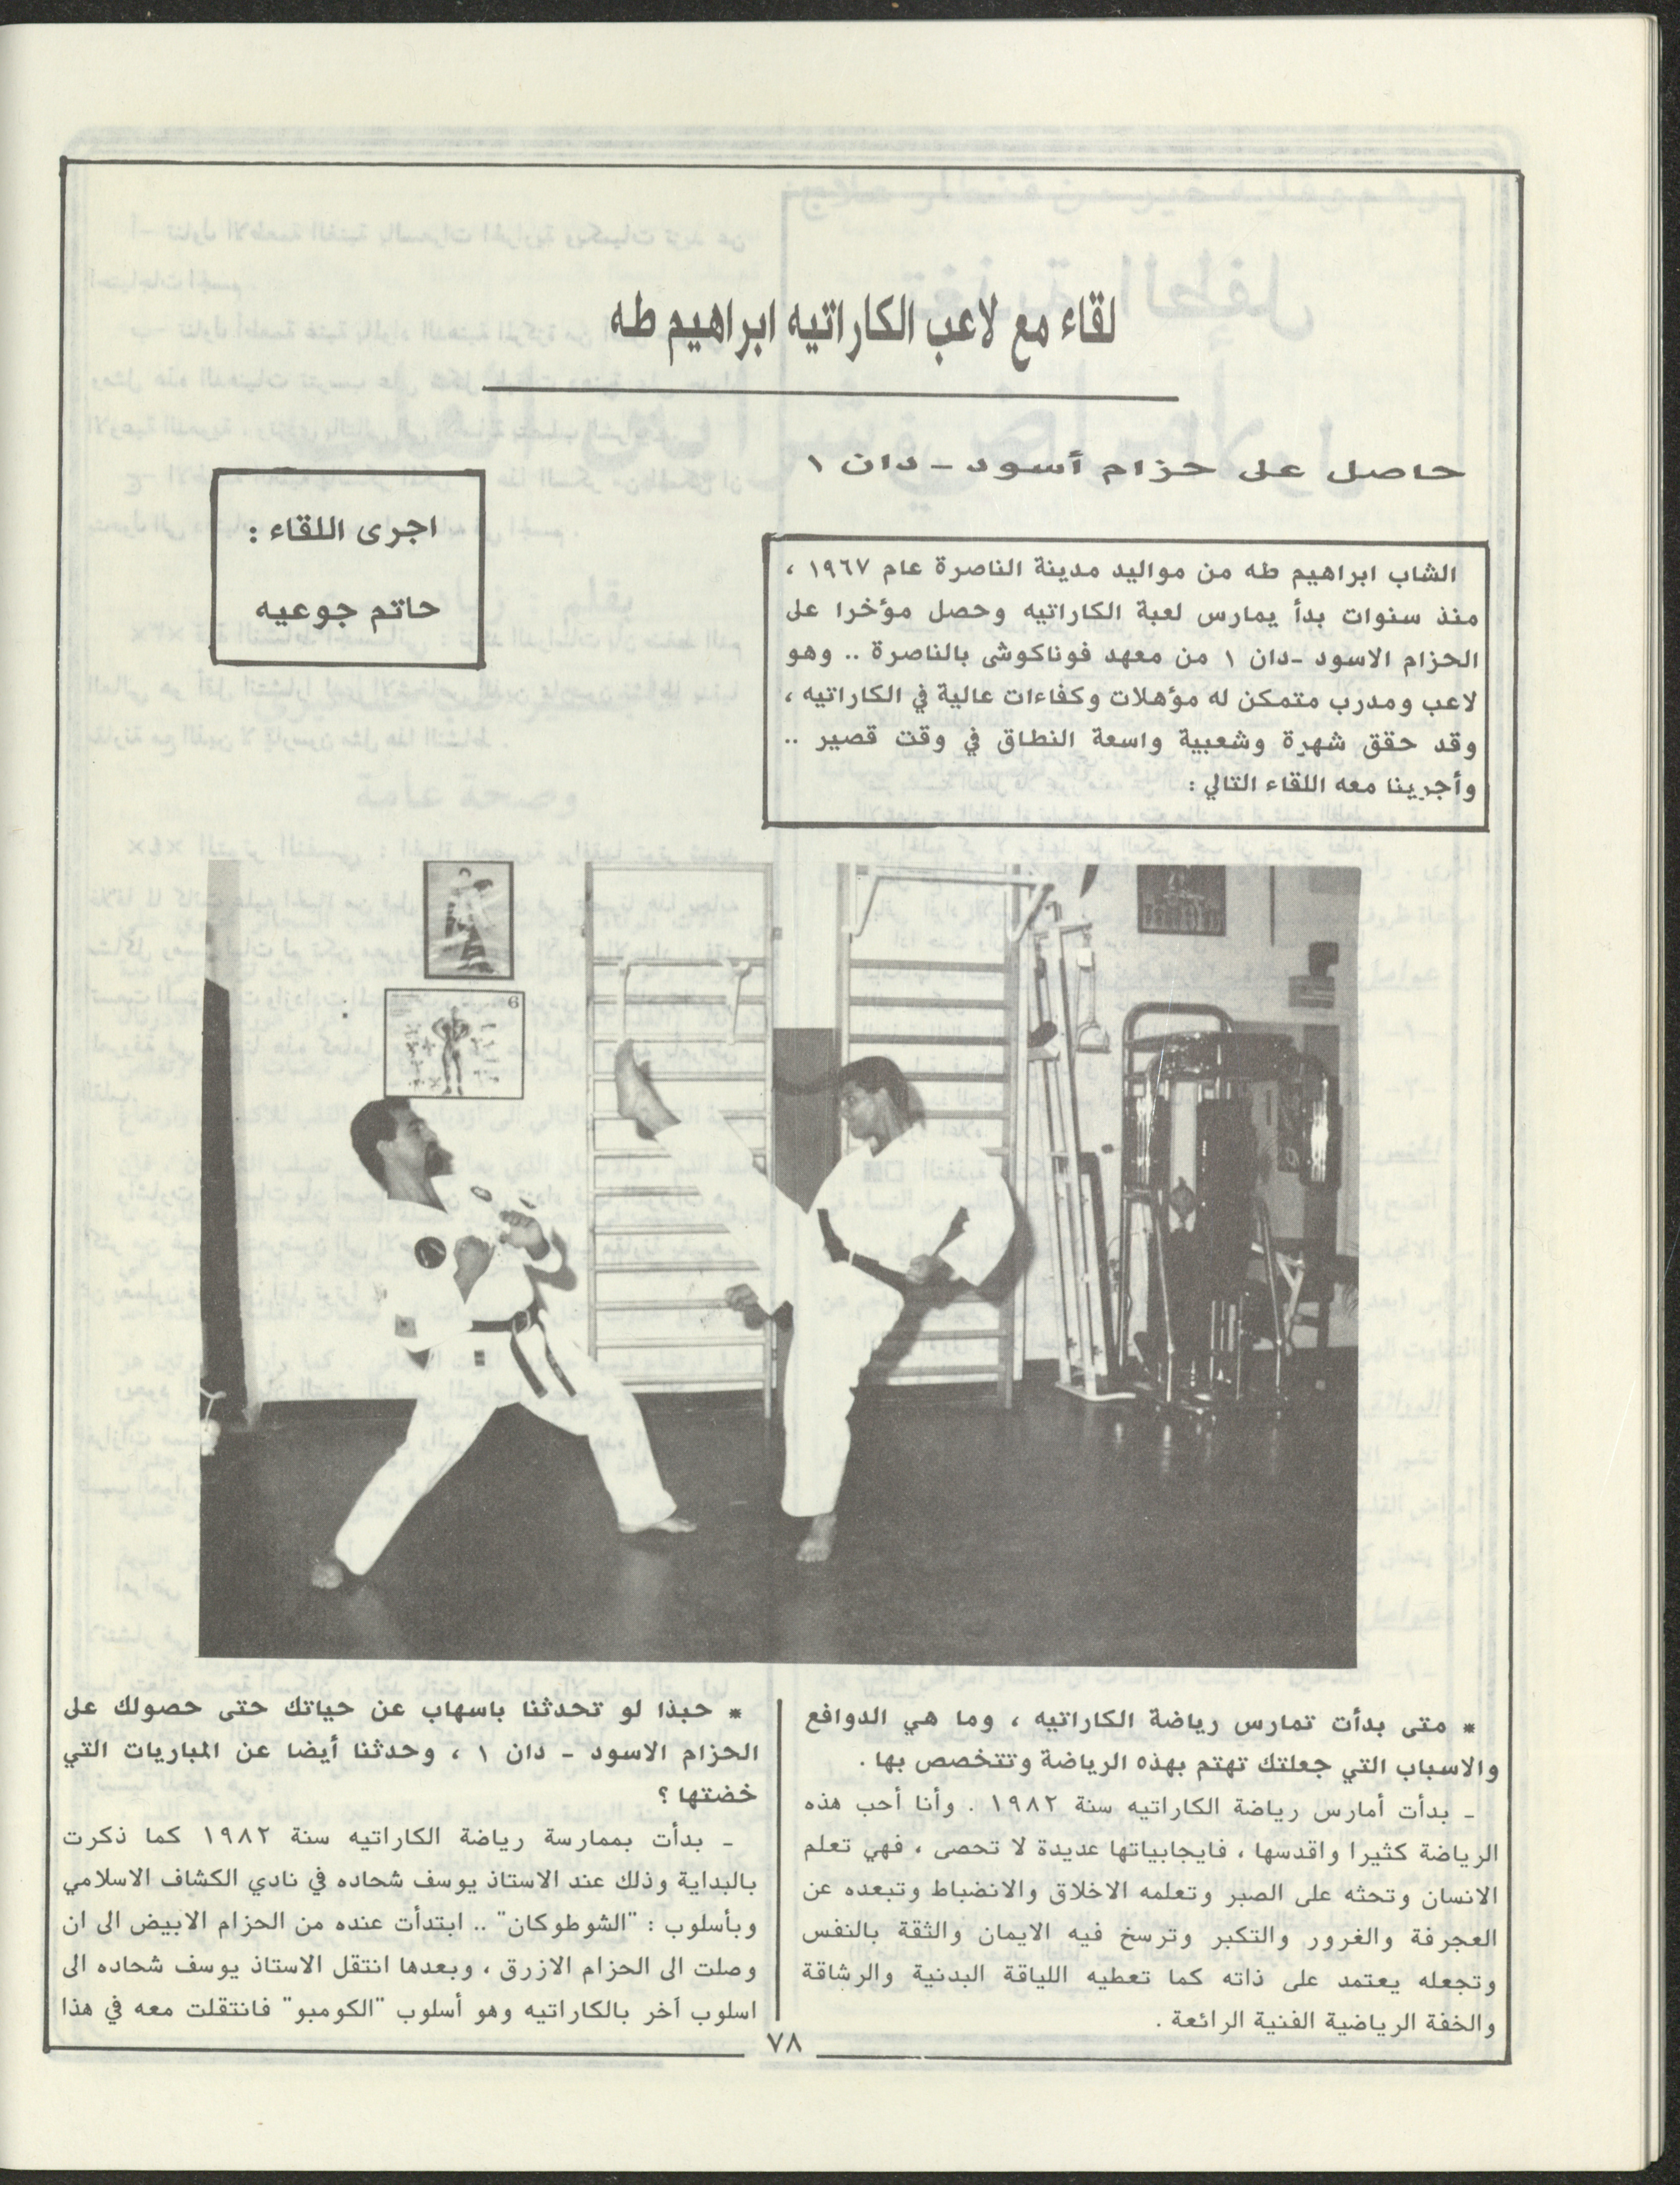 لقاء مع لاعب الكاراتيه ابراهيم طه
حاصل على حزام أسود - دان ١
اجرى اللقاء :
حاتم جوعيه
الشاب ابراهيم طه من مواليد مدينة الناصرة عام ١٩٦٧ ،
منذ سنوات بدأ يمارس لعبة الكاراتيه وحصل مؤخرا على
الحزام الاسود -دان ١ من معهد فوناكوشى بالناصرة .. وهو
لاعب ومدرب متمكن له مؤهلات وكفاءات عالية في الكاراتيه ،
وقد حقق شهرة وشعبية واسعة النطاق في وقت قصير ..
وأجرينا معه اللقاء التالي :
6
* متى بدأت تمارس رياضة الكاراتيه ، وما هي الدوافع
والاسباب التي جعلتك تهتم بهذه الرياضة وتتخصص بها .
- بدأت أمارس رياضة الكاراتيه سنة ١٩٨٢ . وأنا أحب هذه
الرياضة كثيرا واقدسها ، فايجابياتها عديدة لا تحصى ، فهي تعلم
الانسان وتحثه على الصبر وتعلمه الاخلاق والانضباط وتبعده عن
العجرفة والغرور والتكبر وترسخ فيه الايمان والثقة بالنفس
وتجعله يعتمد على ذاته كما تعطيه اللياقة البدنية والرشاقة
والخفة الرياضية الفنية الرائعة .
* حبذا لو تحدثنا باسهاب عن حياتك حتى حصولك على
الحزام الاسود - دان ١ ، وحدثنا أيضا عن المباريات التي
خضتها ؟
- بدأت بممارسة رياضة الكاراتيه سنة ١٩٨٢ كما ذكرت
بالبداية وذلك عند الاستاذ يوسف شحاده في نادي الكشاف الاسلامي
وبأسلوب : "الشوطوكان" .. ابتدأت عنده من الحزام الابيض الى ان
وصلت الى الحزام الازرق ، وبعدها انتقل الاستاذ يوسف شحاده الى
اسلوب آخر بالكاراتيه وهو أسلوب "الكومبو" فانتقلت معه في هذا
٧٨